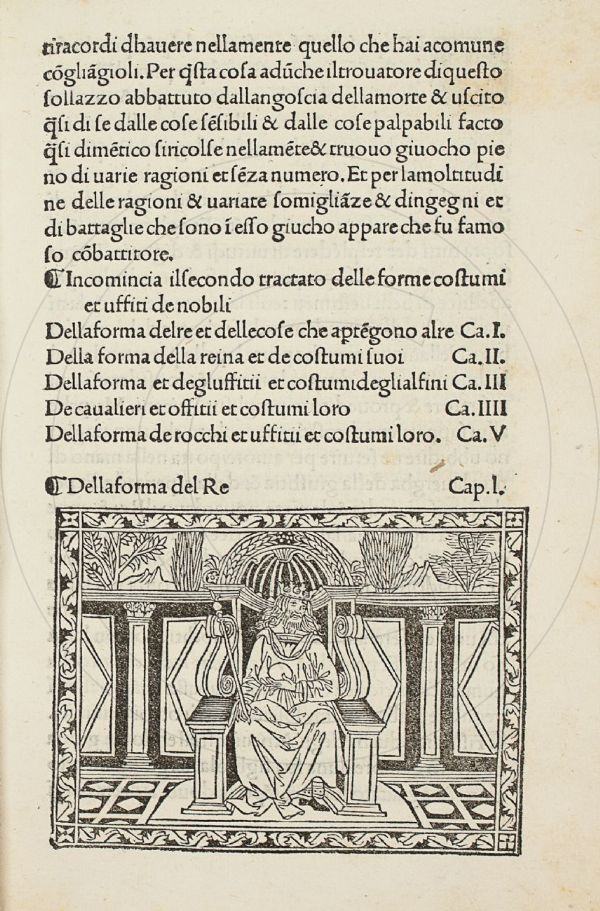 tiracordi dhauere nellamente quello che hai acomune
cōgliāgioli. Per q̄sta cosa adūche iltrouatore diquesto
sollazzo abbattuto dallangoscia dellamorte & uscito
q̄si di se dalle cose sēsibili & dalle cose palpabili facto
q̄si dimētico siricolse nellamēte& truouo giuocho pie
no di uarie ragioni et sēza numero. Et per lamoltitudi
ne delle ragioni & uariate somigliāze & dingegni et
di battaglie che sono ī esso giucho appare che fu famo
so cōbattitore.
¶ Incomincia ilsecondo tractato delle forme costumi
et uffiti de nobili
Dellaforma delre et dellecose che aptēgono alre Ca. I.
Della forma della reina et de costumi suoi Ca. II.
Dellaforma et degluffitii et costumideglialfini Ca. III
De caualieri et offitii et costumi loro Ca. IIII
Dellaforma de rocchi et uffitii et costumi loro. Ca. V
¶ Dellaforma del Re Cap. I.